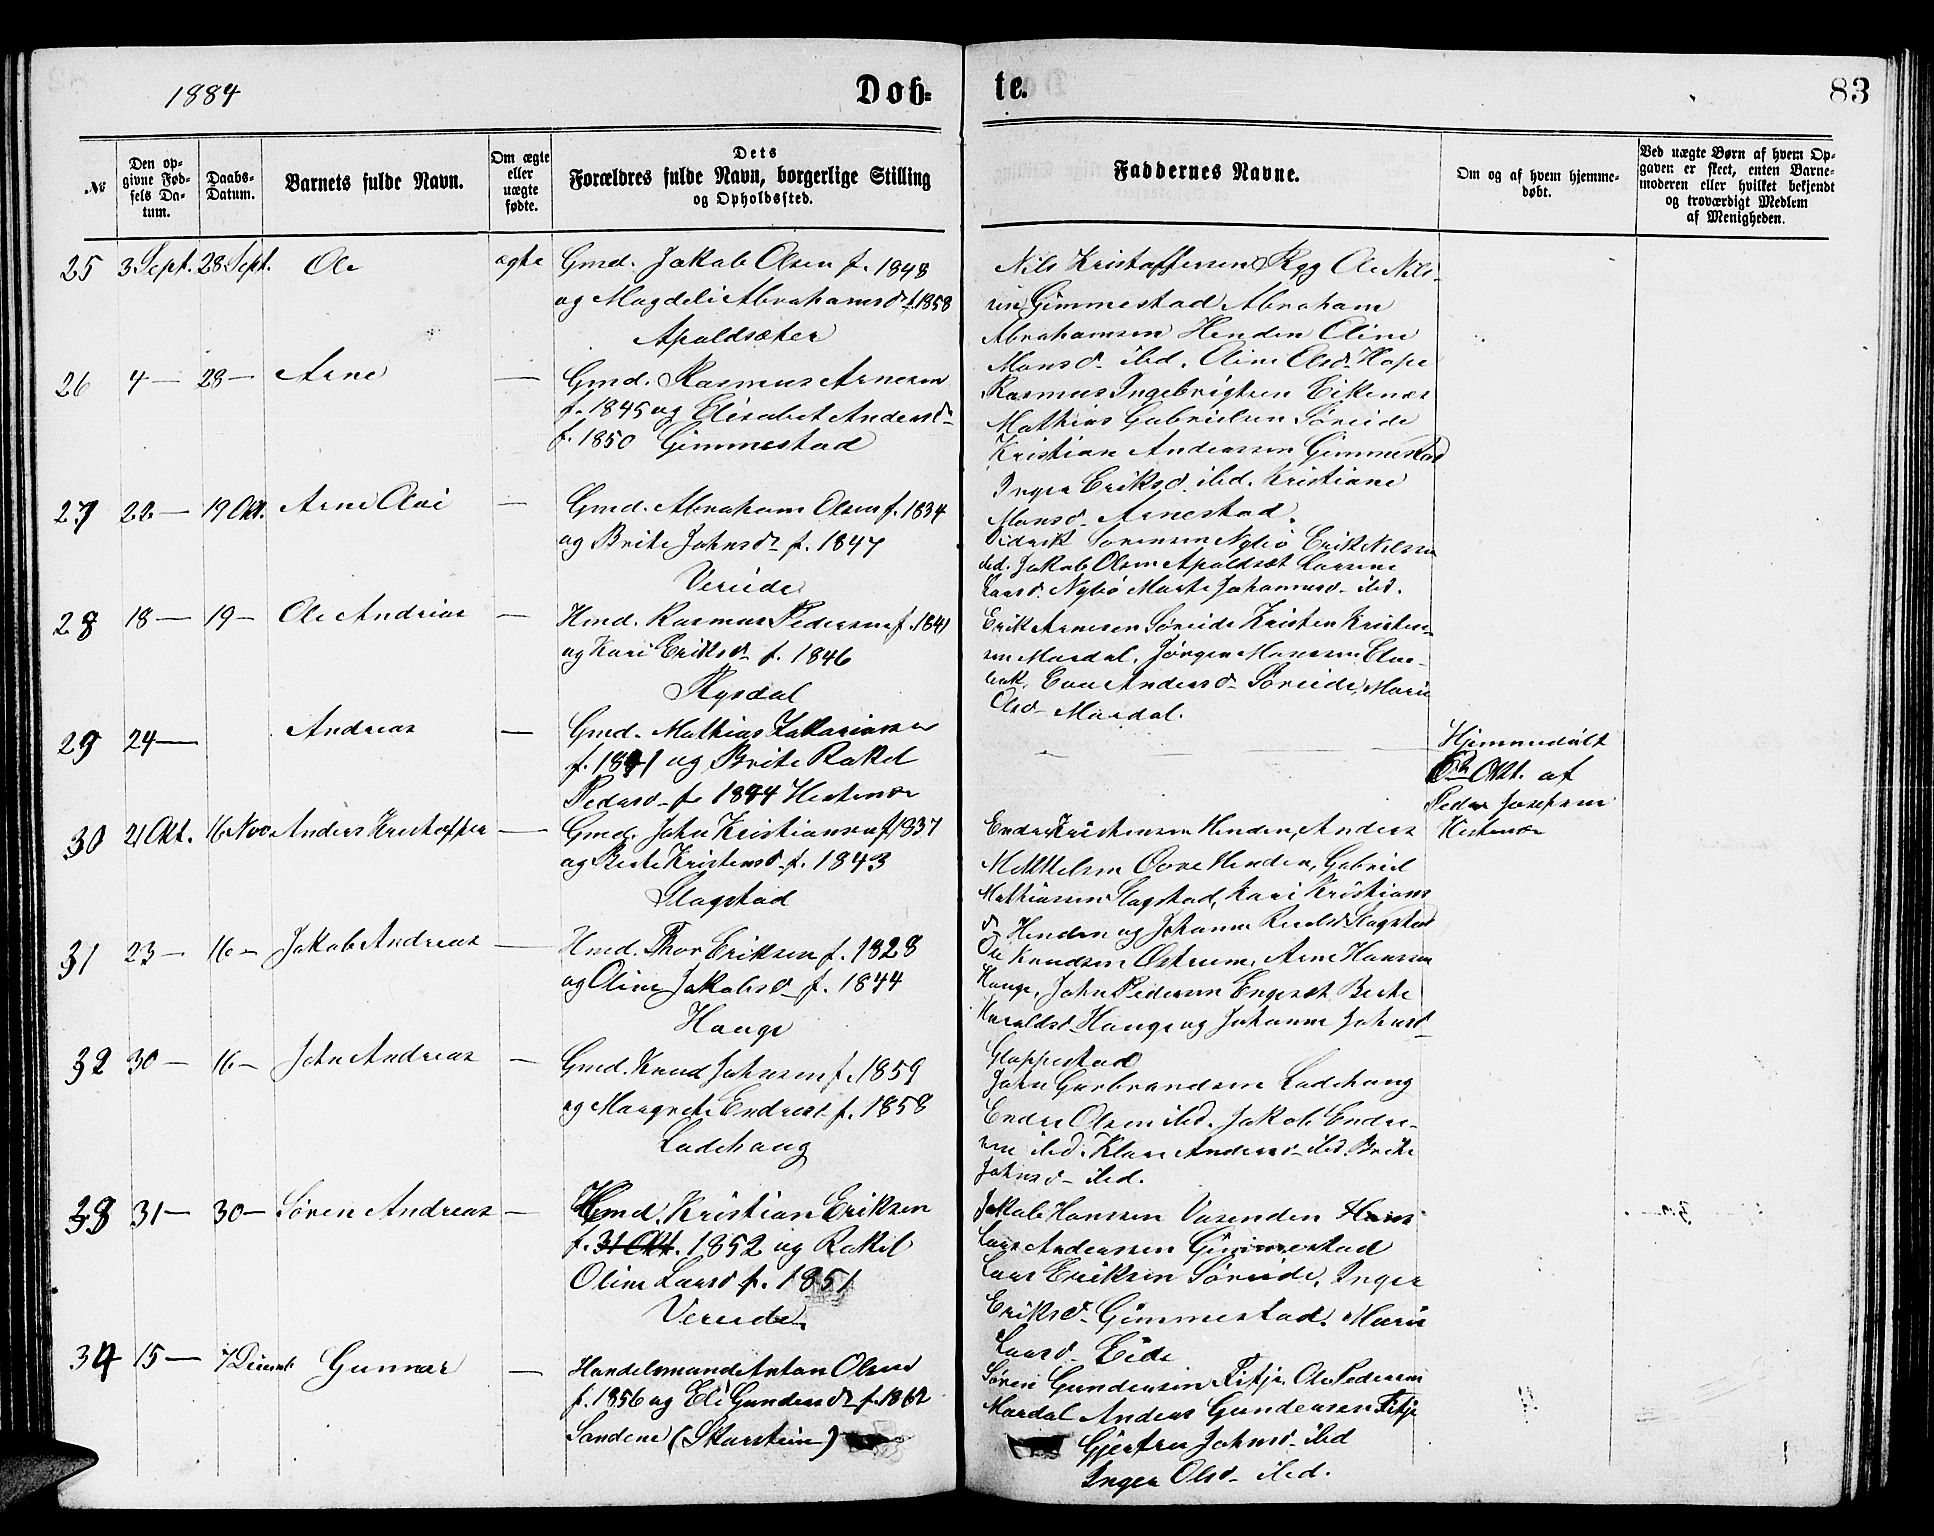 1884
Døb-
te.
83
№
Den op-
givne Fød-
sels Da-
tum.
Daabs-
Datum.
Barnets fulde Navn.
Om ægte
eller
uægte
fødte.
Dets
Forældres fulde Navn, borgerlige Stilling
og Opholdssted.
Faddernes Navne.
Om og af hvem hjemme-
døbt.
Ved uægte Børn af hvem Op-
gaven er skeet, enten Barne-
moderen eller hvilket bekjendt
og troværdigt Medlem
af Menigheden.
25 3 Sept. 28 Sept. Ole ægte Gmd. Jakob Olsen f. 1848
og Magdeli Abrahamsd. f. 1858
Apaldsæter
Nils Kristoffersen Ryg Ole Nils-
sen Gimmestad Abraham
Abrahamsen Henden Oline
Monsd. ibd. Oline Olsd. Hope
26 4 — 28 — Arne — Gmd. Rasmus Arnesen
f. 1845 og Elisabet Andersd.
f. 1850 Gimmestad
Rasmus Ingebrigtsen Eikenæs
Mathias Gabrielsen Søreide
Kristian Anderssen Gimmestad
Inger Eriksd. ibd. Kristiane
Monsd. Arnestad.
27 22 — 19 Okt. Arne Olai — Gmd. Abraham Olsen f. 1834
og Brite Johnsd. f. 1847
Vereide
Didrik Sørensen Nybø Erik Nilssen
ibd. Jakob Olsen Apaldset Larsine
Larsd. Nybø Marte Johannesd. ibd.
28 18 — 19 — Ole Andreas — Hmd. Rasmus Pedersen f. 1841
og Kari Eriksd. f. 1846
Rysdal
Erik Arnesen Søreide Kristen Kristen-
sen Mardal. Jørgen Monssen
Anders d. Søreide, Marie
Olsd. Mardal.
29 24 — Andreas — Gmd. Mathias Zakariassen
f. 1841 og Brite Rakel
Pedersd. f. 1844 Hestenæs
Hjemmedøbt
Okt. af
Peder Josefsen
Hestenæs
30 21 Okt. 16 Nov Anders Kristoffer — Gmd. John Kristiansen f. 1837
og Berte Kristensd. f. 1843
Slagstad
Endre Kristensen Henden, Anders
Mikkelsen Øvre Henden, Gabriel
Mathiassen Slagstad, Kari Kristians
d. Henden og Johanne Slagstad
31 23 — 16 — Jakob Andreas — Hmd. Thor Eriksen f. 1828
og Oline Jakobsd. f. 1844
Hauge
Ole Knudsen Østrem, Arne Hanssen
Hauge, John Pedersen Engeset Berte
Haraldsd. Hauge og Johanne Johnsd.
Gloppestad
32 30 — 16 — John Andreas — Gmd. Knud Johnsen f. 1859
og Margrete Endresd. f. 1858
Ladehaug
John Gubrandsen Ladehaug
Endre Olsen ibd. Jakob Endre-
sen ibd. Andersd. ibd. Brite
Johnsd. ibd.
33 31 — 30 — Søren Andreas — Hmd. Kristian Eriksen
f. 31 Okt. 1852 og Rakel
Oline Larsd. f. 1851
Vereide
Jakob Hanssen Vasenden Hans
Lars Anderssen Gimmestad
Lars Eriksen Søreide, Inger
Eriksd. Gimmestad. Marie
Larsd. Eide
34 15 — 7 Decemb Gunnar — Handelsmand Anton Olsen
f. 1856 og Eli Gundersd. f. 1862
Sandene (Skarstein)
Søren Gundersen Fitje Ole Pedersen
Mardal Anders Gundersen Fitje
Gjertru Johnsd. ibd
Inger Olsd. ibd.